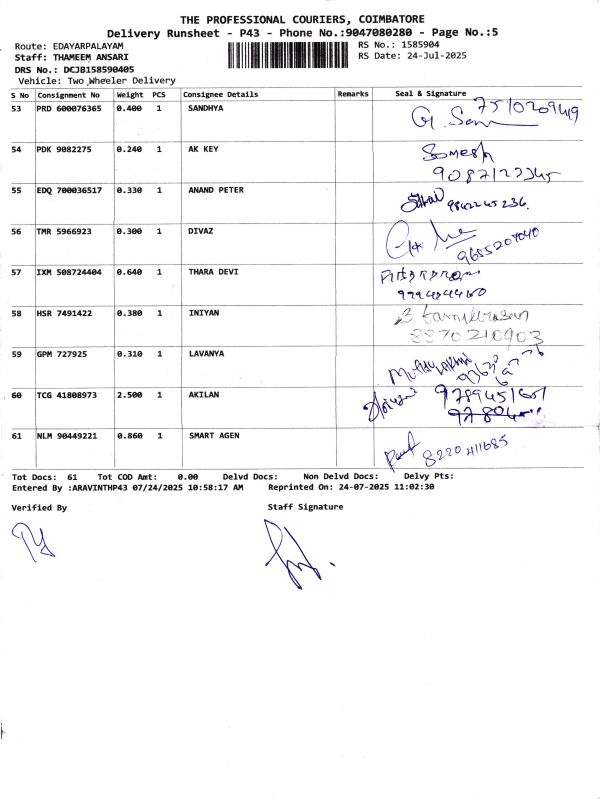 THE PROFESSIONAL COURIERS, COIMBATORE
Delivery Runsheet - P43 - Phone No.:9047080280 - Page No.:5
Route: EDAYARPALAYAM RS No.: 1585904
Staff: THAMEEM ANSARI RS Date: 24-Jul-2025
DRS No.: DCJB158590405
Vehicle: Two Wheeler Delivery
S No Consignment No Weight PCS Consignee Details Remarks Seal & Signature
53 PRD 600076365 0.400 1 SANDHYA 7510209449
54 PDK 9082275 0.240 1 AK KEY Somesh
9087123345
55 EDQ 700036517 0.330 1 ANAND PETER 9842245236.
56 TMR 5966923 0.300 1 DIVAZ
57 IXM 508724404 0.640 1 THARA DEVI
58 HSR 7491422 0.380 1 INIYAN
8870210903
59 GPM 727925 0.310 1 LAVANYA
60 TCG 41808973 2.500 1 AKILAN
61 NLM 90449221 0.860 1 SMART AGEN 8220411685
Tot Docs: 61 Tot COD Amt: 0.00 Delvd Docs: Non Delvd Docs: Delvy Pts:
Entered By :ARAVINTHP43 07/24/2025 10:58:17 AM Reprinted On: 24-07-2025 11:02:30
Verified By Staff Signature